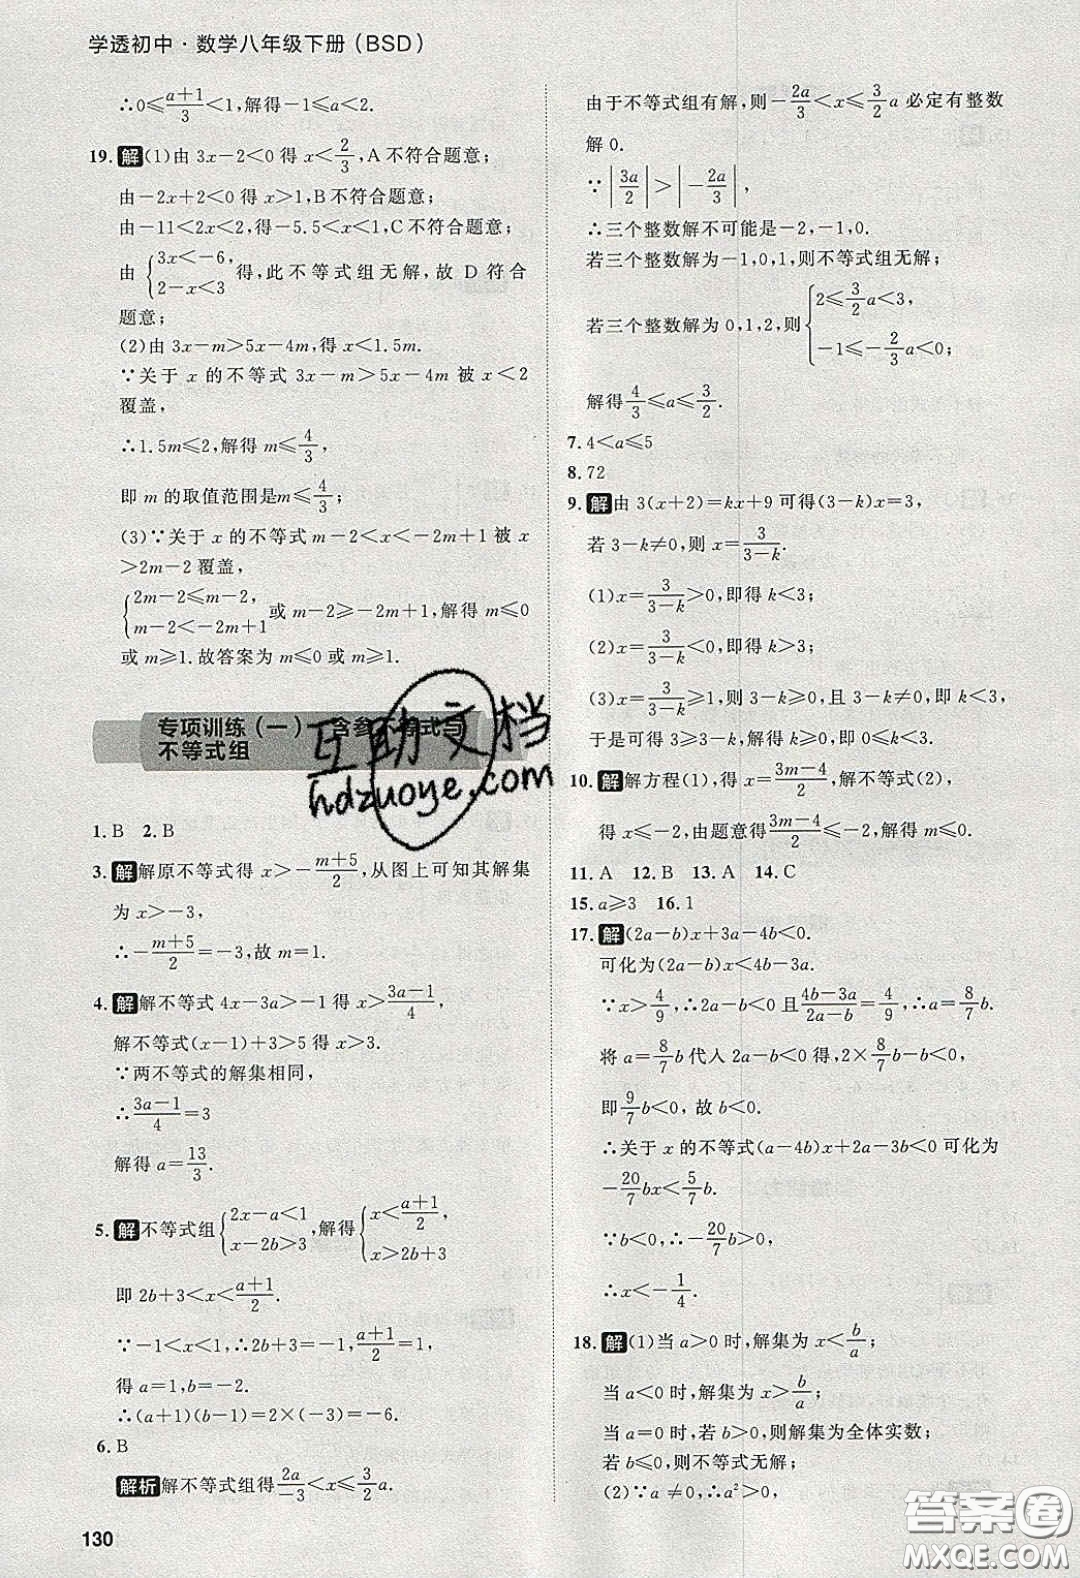 学透初中·数学八年级下册(BSD)
∴0≤(a+1)/3<1,解得-1≤a<2.
19.解(1)由3x-2<0得x<2/3,A不符合题意;
由-2x+2<0得x>1,B不符合题意;
由-11<2x<2,得-5.5<x<1,C不符合题意;
由{3x<-6, 2-x<3得,此不等式组无解,故D符合
题意;
(2)由3x-m>5x-4m,得x<1.5m.
∵关于x的不等式3x-m>5x-4m被x<2
覆盖,
∴1.5m≤2,解得m≤4/3,
即m的取值范围是m≤4/3;
(3)∵关于x的不等式m-2<x<-2m+1被x
>2m-2覆盖,
{2m-2≤m-2, m-2<-2m+1或m-2≥-2m+1,解得m≤0
或m≥1.故答案为m≤0或m≥1.
专项训练(一) 含参不等式与
不等式组
1.B 2.B
3.解解原不等式得x>-(m+5)/2,从图上可知其解集
为x>-3,
∴-(m+5)/2=-3,故m=1.
4.解解不等式4x-3a>-1得x>(3a-1)/4,
解不等式(x-1)+3>5得x>3.
∵两不等式的解集相同,
∴(3a-1)/4=3
解得a=13/3.
5.解不等式组{2x-a<1 x-2b>3,解得{x<(a+1)/2, x>2b+3
即2b+3<x<(a+1)/2.
∵-1<x<1,∴2b+3=-1,(a+1)/2=1,
得a=1,b=-2.
∴(a+1)(b-1)=2×(-3)=-6.
6.B
解析解不等式组得2a/-3<x≤3/2a.
130
由于不等式组有解,则-2a/3<x≤3/2a必定有整数
解0.
∵|3a/2|>|-2a/3|,
∴三个整数解不可能是-2,-1,0.
若三个整数解为-1,0,1,则不等式组无解;
若三个整数解为0,1,2,则{2≤3/2a<3, -1≤-2/3a<0;
解得4/3≤a≤3/2.
7.4<a≤5
8.72
9.解由3(x+2)=kx+9可得(3-k)x=3,
若3-k≠0,则x=3/(3-k).
(1)x=3/(3-k)>0,即得k<3;
(2)x=3/(3-k)<0,即得k>3;
(3)x=3/(3-k)≥1,则3>k≥0,且3-k≠0,即k≠3,
于是可得3>k≥0,即0≤k<3.
10.解解方程(1),得x=(3m-4)/2,解不等式(2),
得x≤-2,由题意得(3m-4)/2≤-2,解得m≤0.
11.A 12.B 13.A 14.C
15.a≥3 16.1
17.解(2a-b)x+3a-4b<0.
可化为(2a-b)x<4b-3a.
∵x>4/9,∴2a-b<0且(4b-3a)/(2a-b)=4/9,∴a=8/7b.
将a=8/7b代入2a-b<0得,2×8/7b-b<0,
即9/7b<0,故b<0.
∴关于x的不等式(a-4b)x+2a-3b<0可化为
-20/7bx<5/7b.
∵b<0,∴-20/7b>0,
∴x<-1/4.
18.解(1)当a>0时,解集为x<b/a;
当a<0时,解集为x>b/a;
当a=0时,若b>0,则解集为全体实数;
若b≤0,则不等式无解;
(2)∵a≠0,∴a²>0,
互助文档
hdzuoye.com
答案圈
MXQE.COM